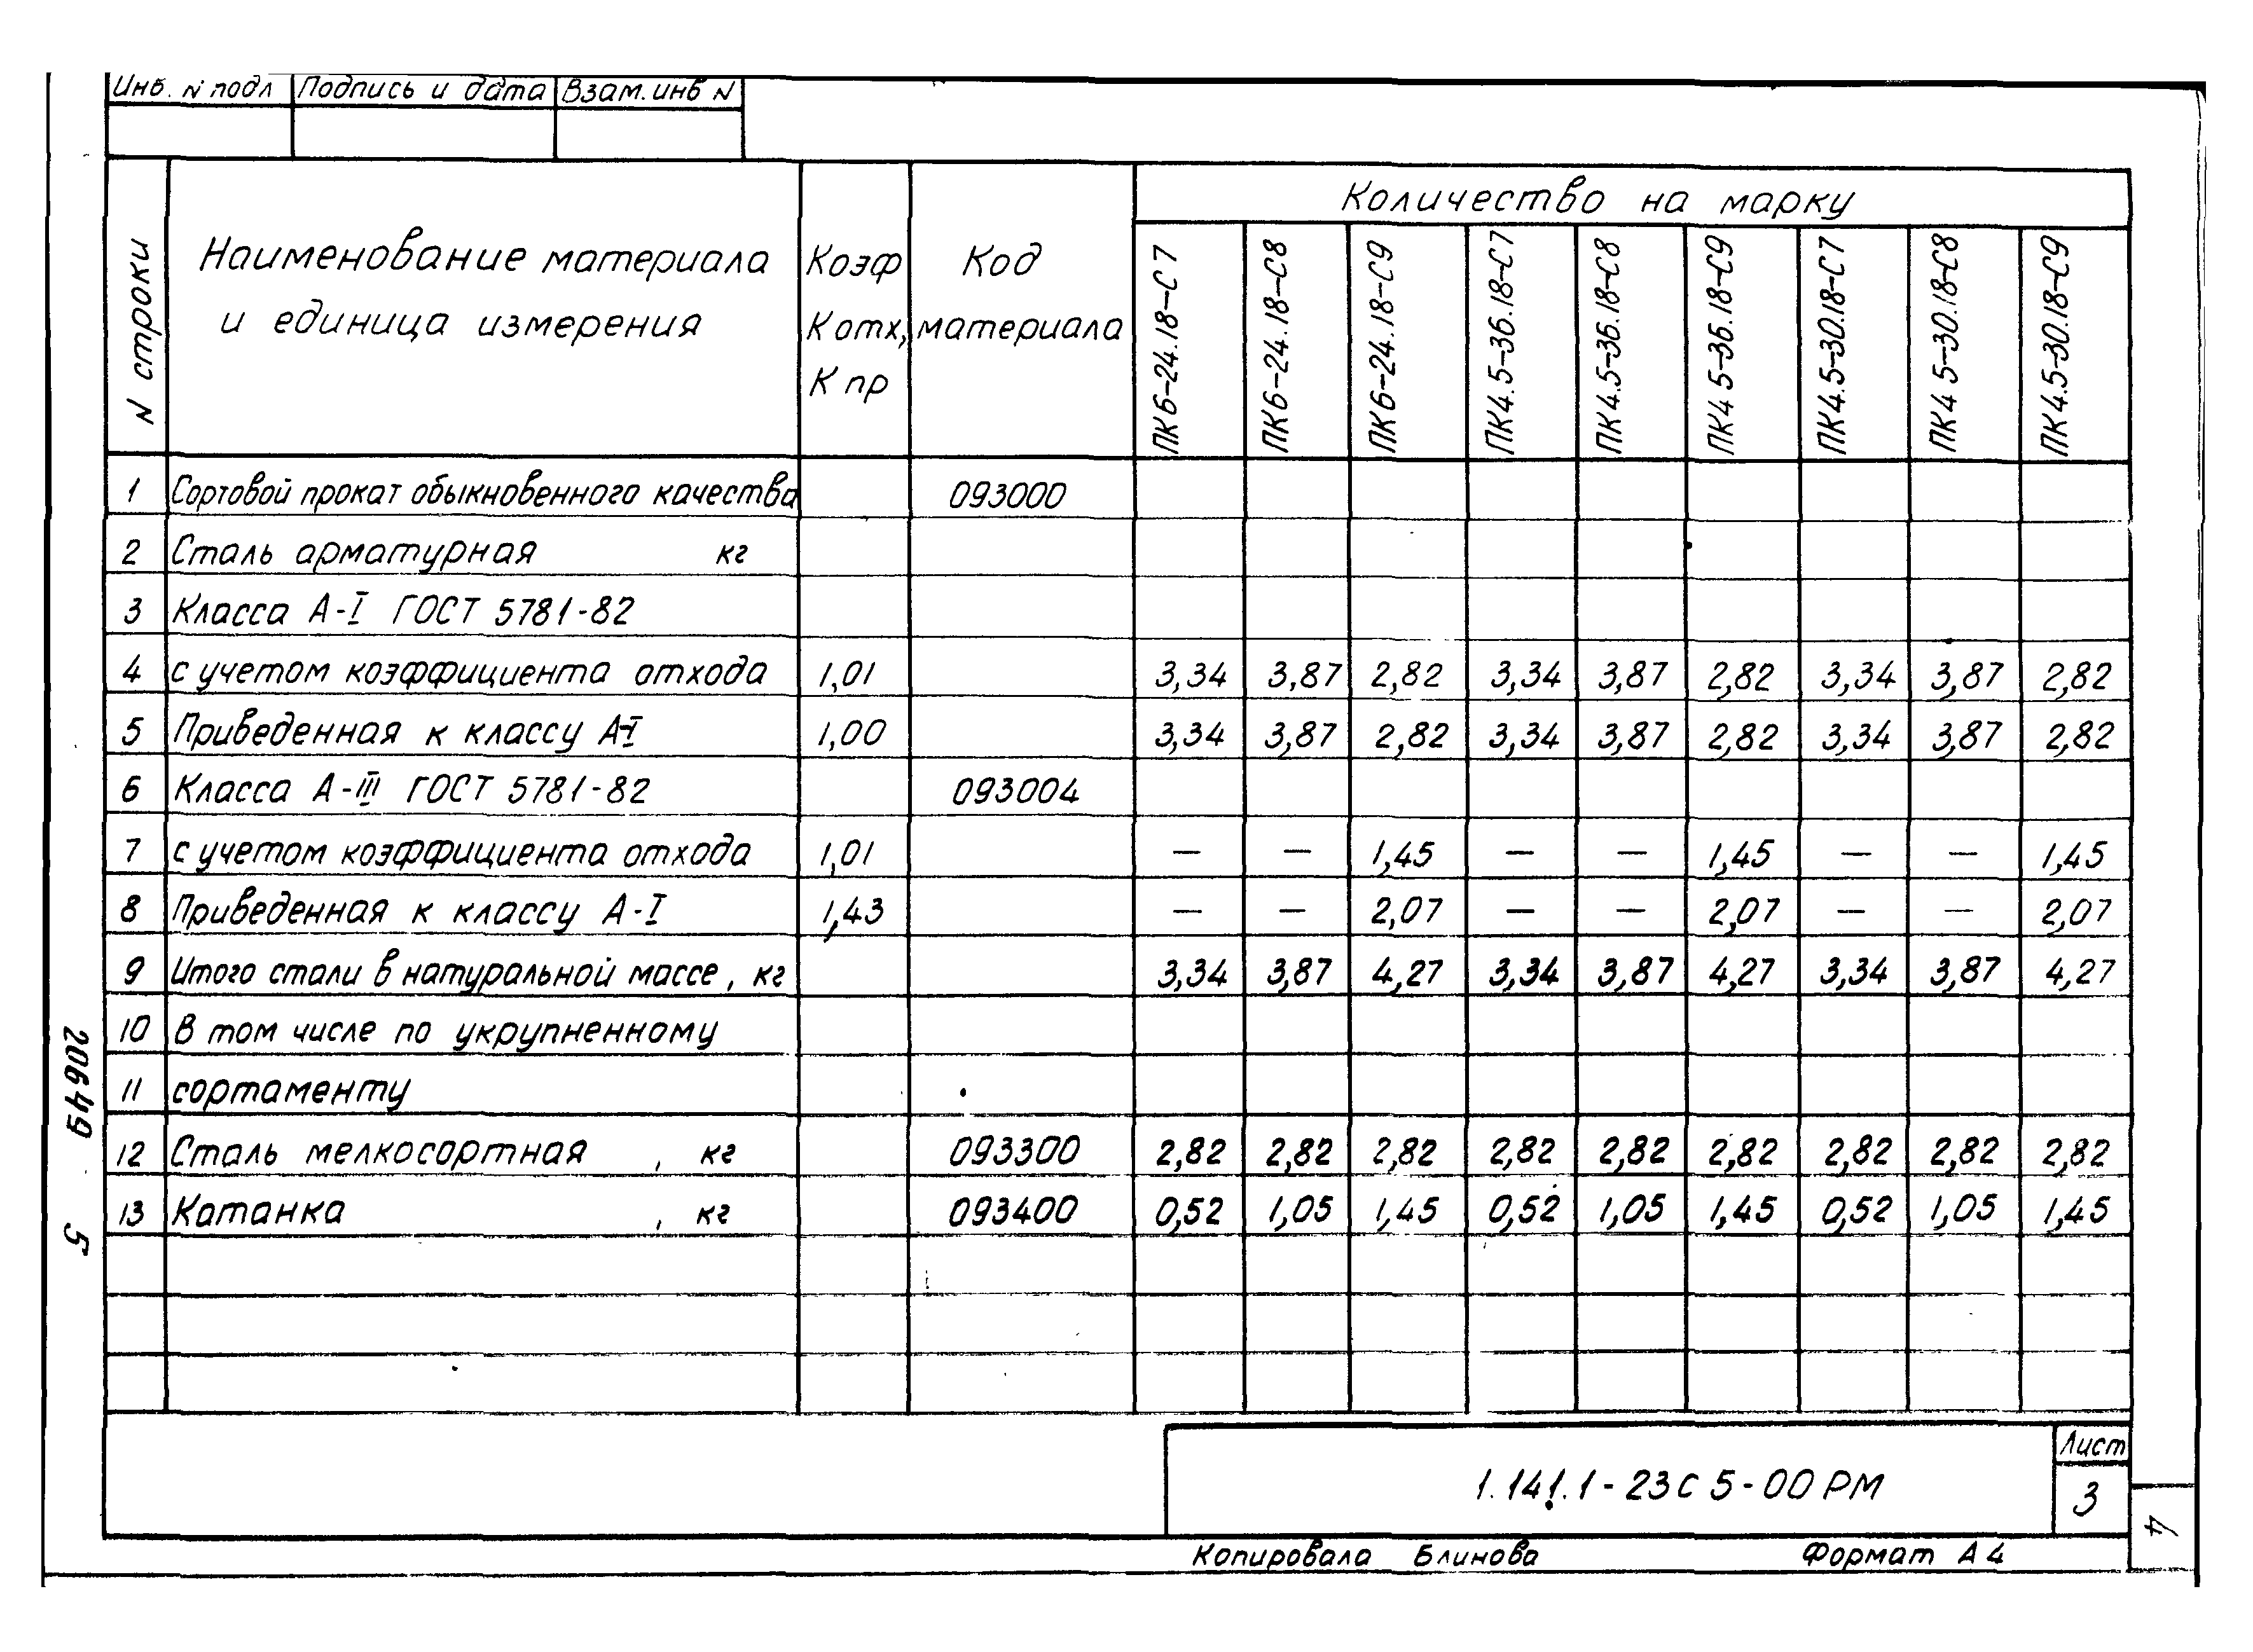 Инв. N подл Подпись и дата Взам. инв N
N строки Наименование материала и единица измерения Коэф К отх, К пр Код материала Количество на марку
ПК6-24.18-С7 ПК6-24.18-С8 ПК6-24.18-С9 ПК4.5-36.18-С7 ПК4.5-36.18-С8 ПК4 5-36.18-С9 ПК4.5-30.18-С7 ПК4 5-30.18-С8 ПК4.5-30.18-С9
1 Сортовой прокат обыкновенного качества 093000
2 Сталь арматурная кг
3 Класса А-I ГОСТ 5781-82
4 с учетом коэффициента отхода 1,01 3,34 3,87 2,82 3,34 3,87 2,82 3,34 3,87 2,82
5 Приведенная к классу А-I 1,00 3,34 3,87 2,82 3,34 3,87 2,82 3,34 3,87 2,82
6 Класса А-III ГОСТ 5781-82 093004
7 с учетом коэффициента отхода 1,01 — — 1,45 — — 1,45 — — 1,45
8 Приведенная к классу А-I 1,43 — — 2,07 — — 2,07 — — 2,07
9 Итого стали в натуральной массе, кг 3,34 3,87 4,27 3,34 3,87 4,27 3,34 3,87 4,27
10 В том числе по укрупненному
11 сортаменту
12 Сталь мелкосортная , кг 093300 2,82 2,82 2,82 2,82 2,82 2,82 2,82 2,82 2,82
13 Катанка , кг 093400 0,52 1,05 1,45 0,52 1,05 1,45 0,52 1,05 1,45
20649 5
1.141.1-23С 5-00 РМ
Лист
3
4
Копировала Блинова Формат А4